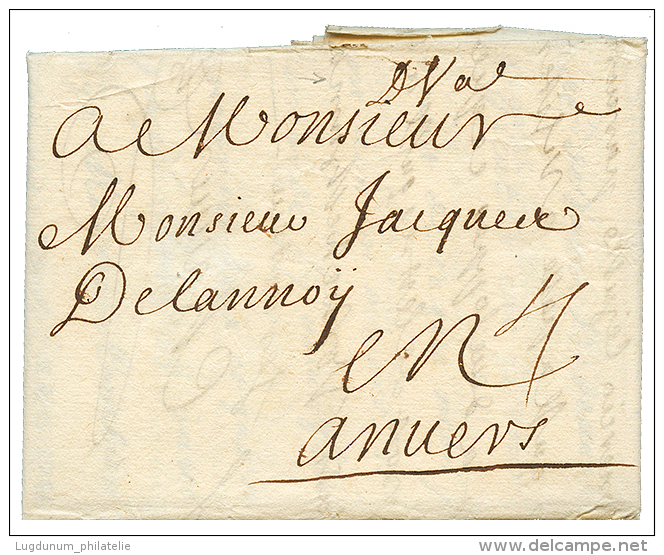 DVal
A Monsieur
Monsieur Jacques
Delannoÿ
en 4
anvers
Lugdunum_philatelie
delcampe.net